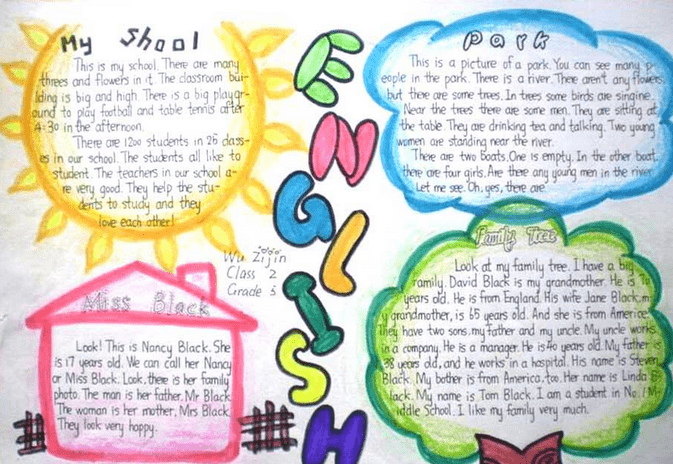 My Shool
This is my school. There are many
threes and flowers in it. The classroom bui-
lding is big and high. There is a big playgr-
ound to play football and table tennis after
4:30 in the afternoon.
There are 1200 students in 25 class-
es in our school. The students all like to
student. The teachers in our school a-
re very good. They help the stu-
dents to study and they
love each other!
ENGLISH
Park
This is a picture of a park. You can see many p-
eople in the park. There is a river. There aren't any flowers,
but there are some trees. In trees some birds are singine.
Near the trees there are some men. They are sitting at
the table. They are drinking tea and talking. Two young
women are standing near the river.
There are two boats. One is empty. In the other boat,
there are four girls. Are there any young men in the river
Let me see. Oh, yes, there are
Wu Zijin
Class 2
Grade 3
Miss Black
Look! This is Nancy Black. She
is 17 years old. We can call her Nancy
or Miss Black. Look, there is her family
photo. The man is her father, Mr Black
The woman is her mother, Mrs Black.
They look very happy.
Family Tree
Look at my family tree. I have a big
family. David Black is my grandmother. He is
years old. He is from England. His wife Jane Black, m
y grandmother, is 65 years old. And she is from Americe.
They have two sons, my father and my uncle. My uncle works
in a company. He is a manager. He is 40 years old. My father is
38 years old, and he works in a hospital. His name is Steven
Black. My bother is from America, too. Her name is Linda B-
lack. My name is Tom Black. I am a student in No. 1 M-
iddle School. I like my family very much.